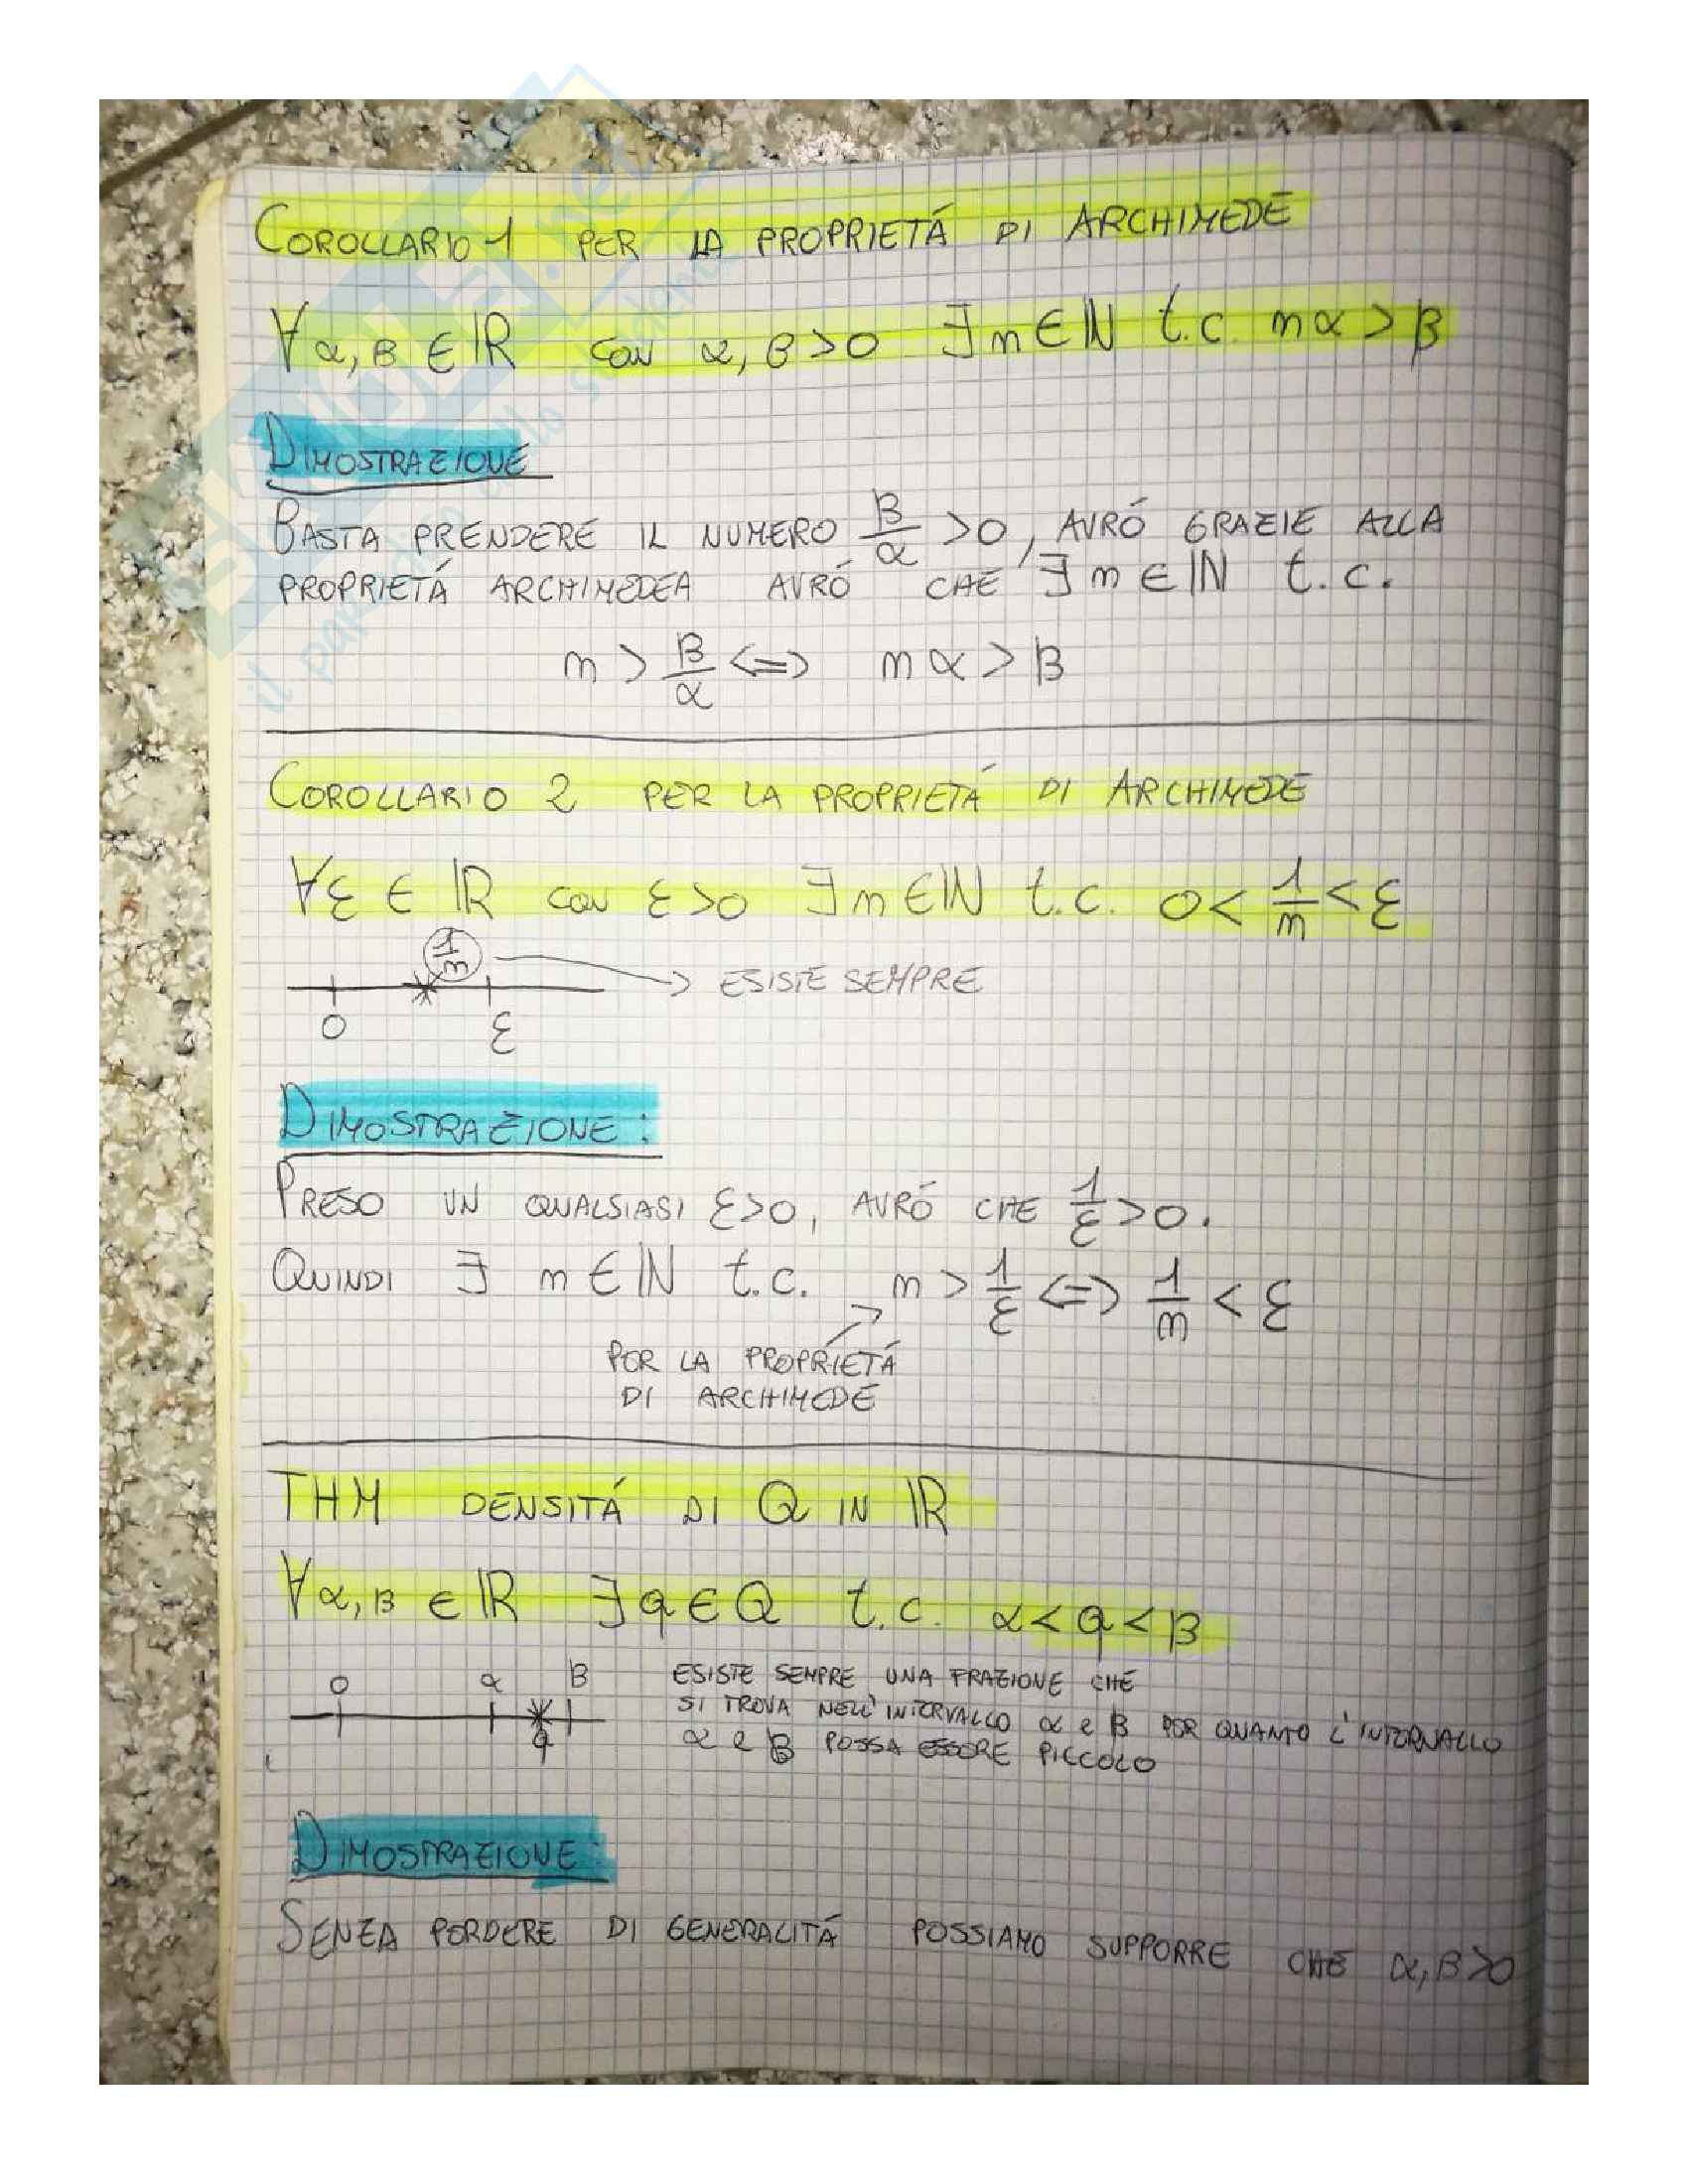 COROLLARIO 1 PER LA PROPRIETÁ DI ARCHIMEDE
∀ α, β ∈ ℝ con α, β > 0 ∃ n ∈ ℕ t.c. nα > β
DIMOSTRAZIONE
BASTA PRENDERE IL NUMERO β/α > 0, AVRÓ GRAZIE ALLA
PROPRIETÁ ARCHIMEDEA AVRÓ CHE ∃ n ∈ ℕ t.c.
n > β/α <=> nα > β
COROLLARIO 2 PER LA PROPRIETÁ DI ARCHIMEDE
∀ ε ∈ ℝ con ε > 0 ∃ n ∈ ℕ t.c. 0 < 1/n < ε
1/n → ESISTE SEMPRE
0 ε
DIMOSTRAZIONE:
PRESO UN QUALSIASI ε > 0, AVRÓ CHE 1/ε > 0.
QUINDI ∃ n ∈ ℕ t.c. n > 1/ε <=> 1/n < ε
PER LA PROPRIETÁ
DI ARCHIMEDE
THM DENSITÁ DI Q IN ℝ
∀ α, β ∈ ℝ ∃ q ∈ Q t.c. α < q < β
0 α β ESISTE SEMPRE UNA FRAZIONE CHE
SI TROVA NELL'INTERVALLO α e β PER QUANTO L'INTERVALLO
q α e β POSSA ESSERE PICCOLO
DIMOSTRAZIONE:
SENZA PERDERE DI GENERALITÁ POSSIAMO SUPPORRE CHE α, β > 0